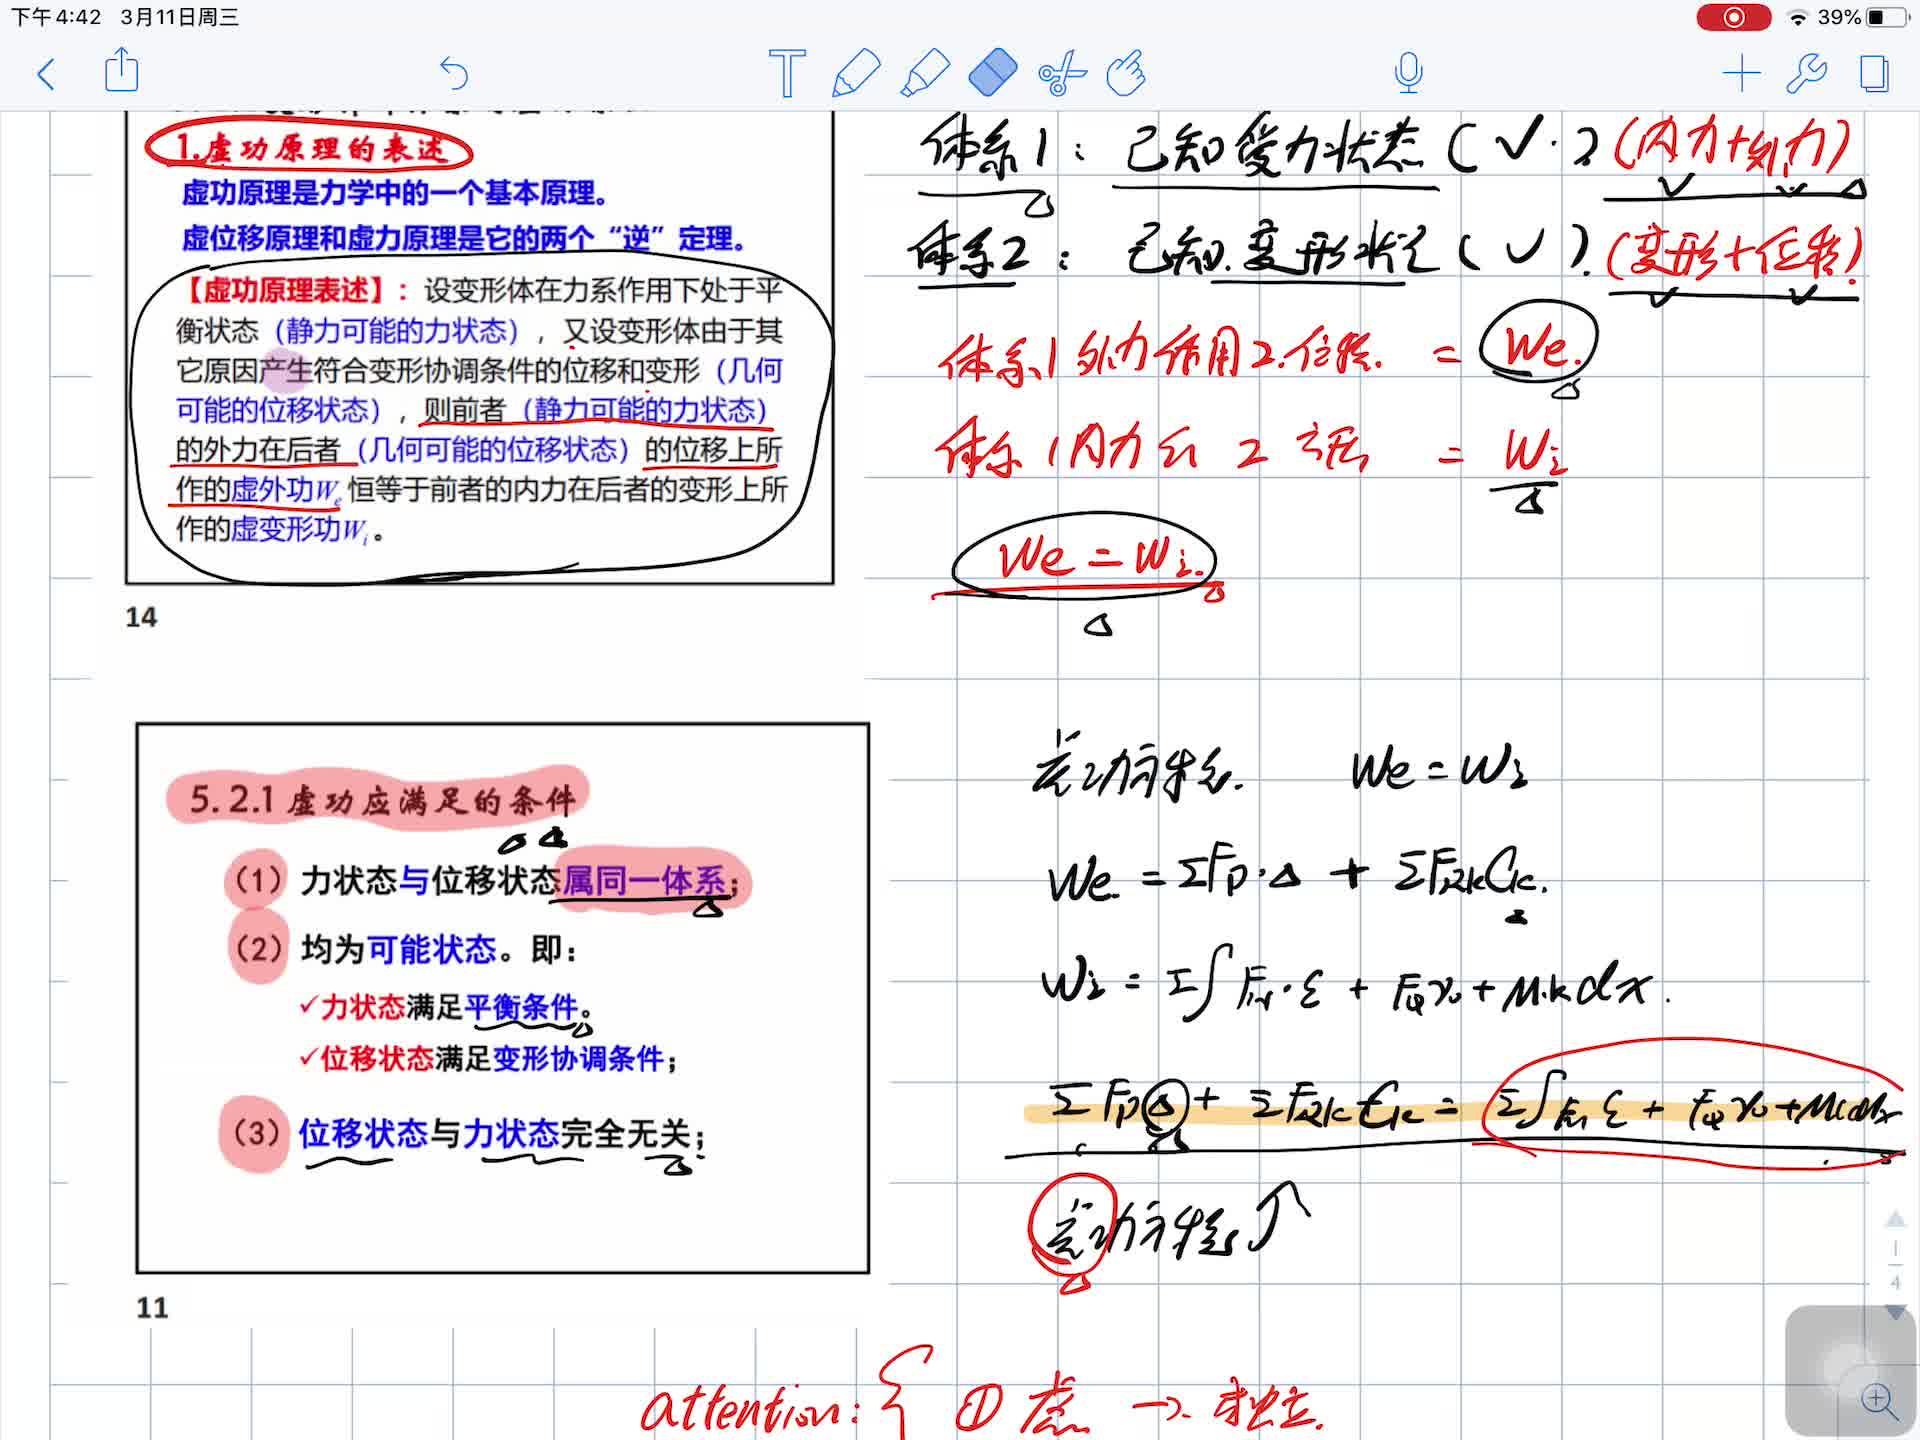 下午4:42 3月11日周三
39%
1.虚功原理的表述
虚功原理是力学中的一个基本原理。
虚位移原理和虚力原理是它的两个“逆”定理。
【虚功原理表述】：设变形体在力系作用下处于平
衡状态（静力可能的力状态），又设变形体由于其
它原因产生符合变形协调条件的位移和变形（几何
可能的位移状态），则前者（静力可能的力状态）
的外力在后者（几何可能的位移状态）的位移上所
作的虚外功We恒等于前者的内力在后者的变形上所
作的虚变形功Wi。
14
体系1：已知受力状态（✓·）（内力+外力）
体系2：已知变形状态（✓）.（变形+位移）
体系1外力作用2位移. = We.
体系1内力 2 = Wi
We = Wi.
5.2.1虚功应满足的条件
（1）力状态与位移状态属同一体系；
（2）均为可能状态。即：
✓力状态满足平衡条件。
✓位移状态满足变形协调条件；
（3）位移状态与力状态完全无关；
11
虚功方程. We = Wi
We = ΣFp·Δ + ΣFRkCk.
Wi = Σ∫FN·ε + FQγ0 + M·k dx.
ΣFpΔ + ΣFRkCk = Σ∫FN ε + FQγ0 + Mkdx
虚功方程
attention: { ① 虚 → 独立.
1
4